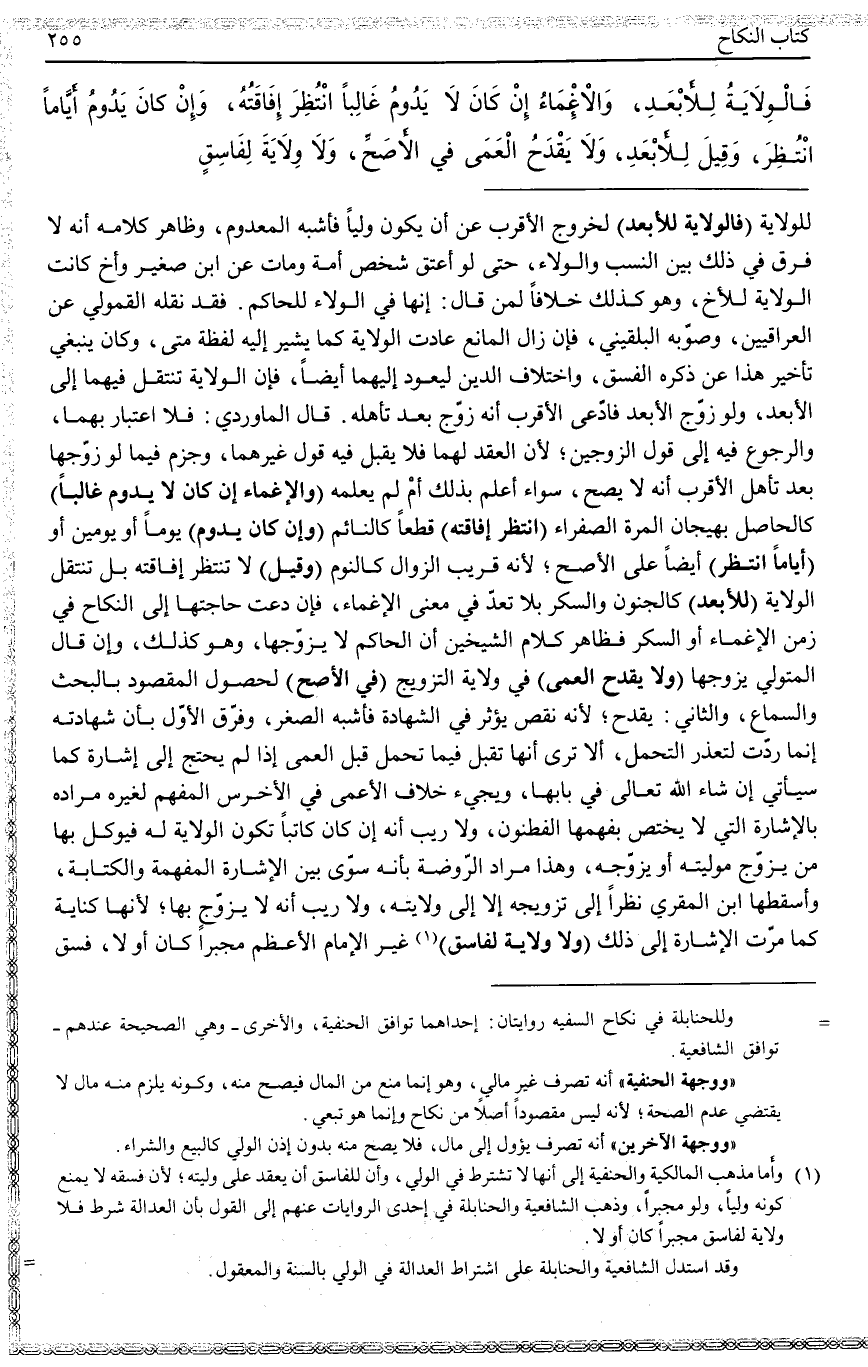 كتاب النكاح ٢٥٥
فَالْوِلَايَةُ لِلْأَبْعَدِ، وَالْإِغْمَاءُ إِنْ كَانَ لَا يَدُومُ غَالِباً انْتُظِرَ إِفَاقَتُهُ، وَإِنْ كانَ يَدُومُ أَيَّاماً
انْتُظِرَ، وَقِيلَ لِلْأَبْعَدِ، وَلَا يَقْدَحُ الْعَمَى في الأَصَحِّ، وَلَا وِلَايَةَ لِفَاسِقٍ
للولاية (فالولاية للأبعد) لخروج الأقرب عن أن يكون ولياً فأشبه المعدوم، وظاهر كلامه أنه لا
فرق في ذلك بين النسب والولاء، حتى لو أعتق شخص أمة ومات عن ابن صغير وأخ كانت
الولاية للأخ، وهو كذلك خلافاً لمن قال: إنها في الولاء للحاكم. فقد نقله القمولي عن
العراقيين، وصوّبه البلقيني، فإن زال المانع عادت الولاية كما يشير إليه لفظة متى، وكان ينبغي
تأخير هذا عن ذكره الفسق، واختلاف الدين ليعود إليهما أيضاً، فإن الولاية تنتقل فيهما إلى
الأبعد، ولو زوّج الأبعد فادّعى الأقرب أنه زوّج بعد تأهله. قال الماوردي: فلا اعتبار بهما،
والرجوع فيه إلى قول الزوجين؛ لأن العقد لهما فلا يقبل فيه قول غيرهما، وجزم فيما لو زوّجها
بعد تأهل الأقرب أنه لا يصح، سواء أعلم بذلك أمْ لم يعلمه (والإغماء إن كان لا يدوم غالباً)
كالحاصل بهيجان المرة الصفراء (انتظر إفاقته) قطعاً كالنائم (وإن كان يدوم) يوماً أو يومين أو
(أياماً انتظر) أيضاً على الأصح؛ لأنه قريب الزوال كالنوم (وقيل) لا تنتظر إفاقته بل تنتقل
الولاية (للأبعد) كالجنون والسكر بلا تعدّ في معنى الإغماء، فإن دعت حاجتها إلى النكاح في
زمن الإغماء أو السكر فظاهر كلام الشيخين أن الحاكم لا يزوّجها، وهو كذلك، وإن قال
المتولي يزوجها (ولا يقدح العمى) في ولاية التزويج (في الأصح) لحصول المقصود بالبحث
والسماع، والثاني: يقدح؛ لأنه نقص يؤثر في الشهادة فأشبه الصغر، وفرق الأوّل بأن شهادته
إنما ردّت لتعذر التحمل، ألا ترى أنها تقبل فيما تحمل قبل العمى إذا لم يحتج إلى إشارة كما
سيأتي إن شاء الله تعالى في بابها، ويجيء خلاف الأعمى في الأخرس المفهم لغيره مراده
بالإشارة التي لا يختص بفهمها الفطنون، ولا ريب أنه إن كان كاتباً تكون الولاية له فيوكل بها
من يزوّج موليته أو يزوّجه، وهذا مراد الرّوضة بأنه سوّى بين الإشارة المفهمة والكتابة،
وأسقطها ابن المقري نظراً إلى تزويجه إلا إلى ولايته، ولا ريب أنه لا يزوّج بها؛ لأنها كناية
كما مرّت الإشارة إلى ذلك (ولا ولاية لفاسق)(١) غير الإمام الأعظم مجبراً كان أو لا، فسق
= وللحنابلة في نكاح السفيه روايتان: إحداهما توافق الحنفية، والأخرى ـ وهي الصحيحة عندهم ـ
توافق الشافعية.
«ووجهة الحنفية» أنه تصرف غير مالي، وهو إنما منع من المال فيصح منه، وكونه يلزم منه مال لا
يقتضي عدم الصحة؛ لأنه ليس مقصوداً أصلاً من نكاح وإنما هو تبعي.
«ووجهة الآخرين» أنه تصرف يؤول إلى مال، فلا يصح منه بدون إذن الولي كالبيع والشراء.
(١) وأما مذهب المالكية والحنفية إلى أنها لا تشترط في الولي، وأن للفاسق أن يعقد على وليته؛ لأن فسقه لا يمنع
كونه ولياً، ولو مجبراً، وذهب الشافعية والحنابلة في إحدى الروايات عنهم إلى القول بأن العدالة شرط فلا
ولاية لفاسق مجبراً كان أو لا.
وقد استدل الشافعية والحنابلة على اشتراط العدالة في الولي بالسنة والمعقول. =